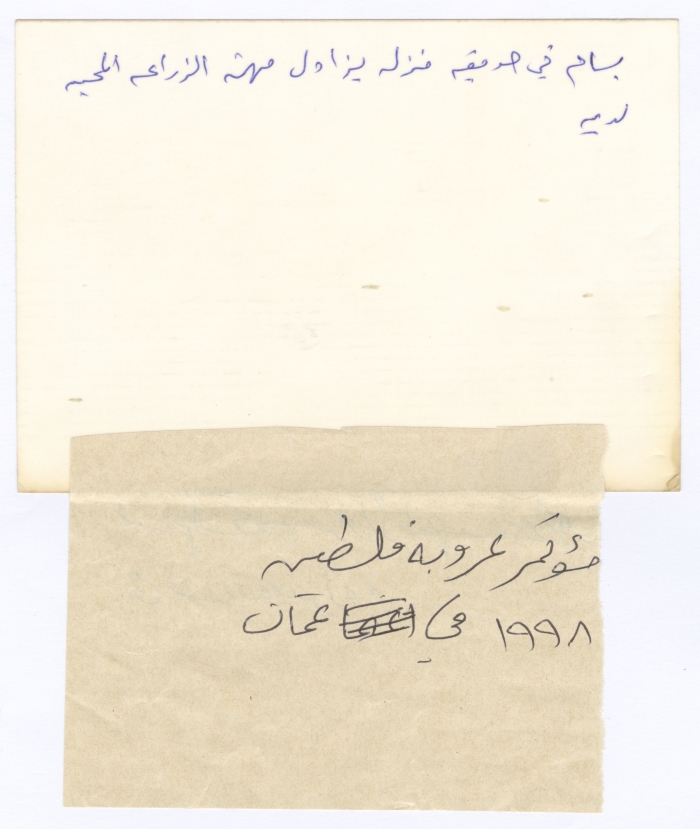 بسام في حديقه منزله يزاول مهنة الزراعه المحببه
لديه
مؤتمر عروبة فلسطين
١٩٩٨ في عمّان